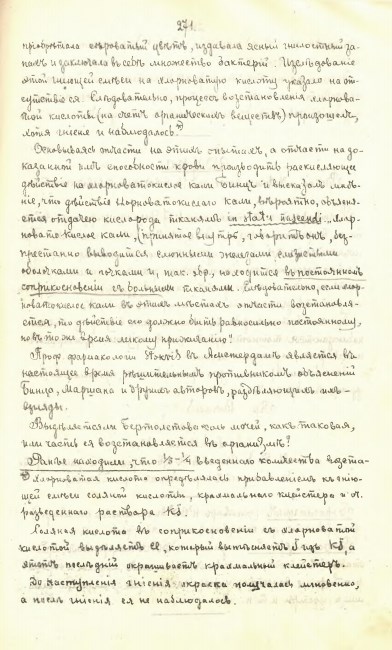 271.
приобрѣтала сѣроватый цвѣтъ, издавала ясный гнилостный за-
пахъ и заключала въ себѣ множество бактерій. Изслѣдованіе
этой гніющей смѣси на хлорноватую кислоту указало на от-
сутствіе ея. Слѣдовательно, процессъ возстановленія хлорнова-
той кислоты (на счетъ органическихъ веществъ) произошелъ,
хотя гніеніе и наблюдалось.*)
Основываясь отчасти на этихъ опытахъ, а отчасти на до-
казанной имъ способности крови производить раскисляющее
дѣйствіе на хлорноватокислое кали Бинцъ и высказалъ мнѣ-
ніе, что дѣйствіе хлорноватокислаго кали, вѣроятно, объясня-
ется отдачею кислорода тканямъ in statu nascendi. „Хлор-
новато-кислое кали, (принятое внутрь, говоритъ онъ, без-
престанно выводится слюнными железами слизистыми
оболочками и почками и, так. обр., находится въ постоянномъ
соприкосновеніи съ больными тканями. Слѣдовательно, если хлор-
новатокислое кали въ этихъ мѣстахъ отчасти возстановля-
ется, то дѣйствіе его должно быть равносильно постоянному,
но въ то же время легкому прижиганію."
Проф. фармакологіи Stokvis въ Амстердамѣ является въ
настоящее время рѣшительнымъ противникомъ объясненій
Бинца, Маршана и другихъ авторовъ, раздѣляющихъ ихъ
взгляды.
Выдѣляется ли Бертолетова соль мочей, какъ таковая,
или часть ея возстановляется въ организмѣ?
Раньше находили, что 1/3 - 1/4 введеннаго количества возста-
*) Хлорноватая кислота опредѣлялась прибавленіемъ къ гнію-
щей смѣси соляной кислоты, крахмальнаго клейстера и
разведеннаго раствора
Соляная кислота въ соприкосновеніи съ хлорноватой
кислотой выдѣляетъ который вытѣсняетъ изъ а
этотъ послѣдній окрашиваетъ крахмальный клейстеръ.
До наступленія гніенія окраска получалась мгновенно,
а послѣ гніенія ея не наблюдалось.